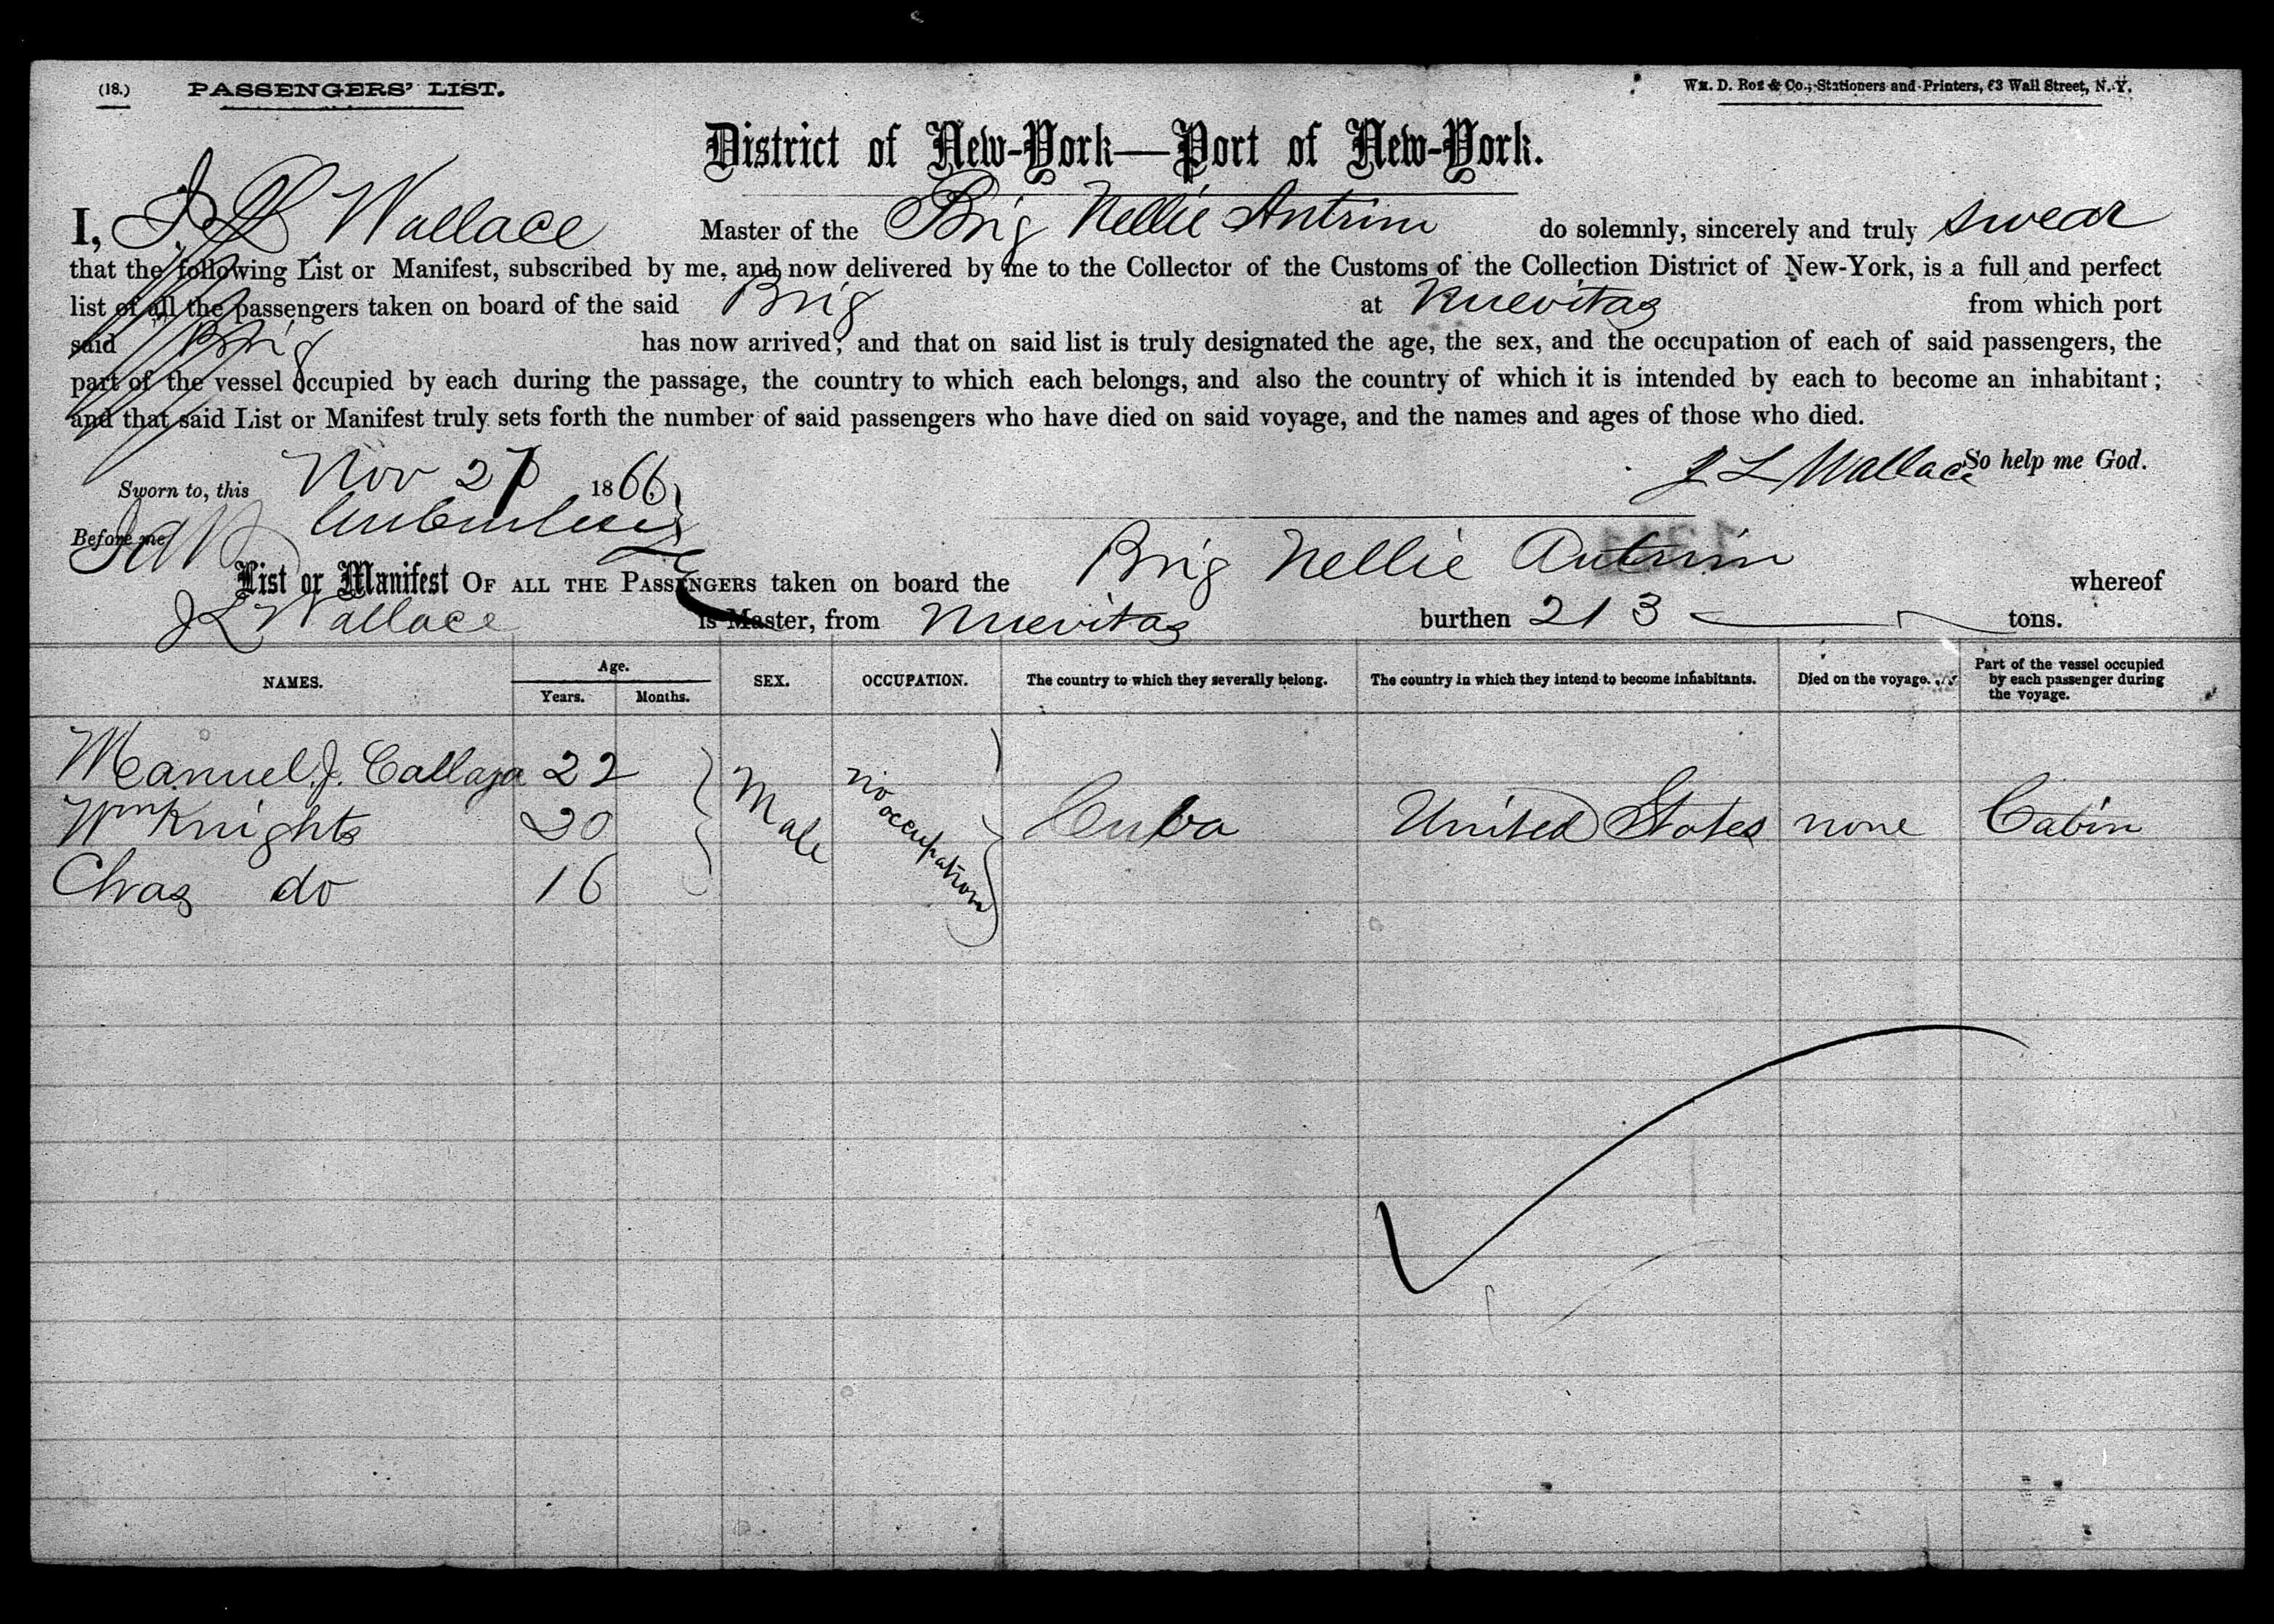 (18.) PASSENGERS' LIST. Wm. D. Roe & Co., Stationers and Printers, 63 Wall Street, N. Y.
District of New-York—Port of New-York.
I, J L Wallace Master of the Brig Nellie Antrim do solemnly, sincerely and truly swear
that the following List or Manifest, subscribed by me, and now delivered by me to the Collector of the Customs of the Collection District of New-York, is a full and perfect
list of all the passengers taken on board of the said Brig at Nuevitas from which port
said Brig has now arrived; and that on said list is truly designated the age, the sex, and the occupation of each of said passengers, the
part of the vessel occupied by each during the passage, the country to which each belongs, and also the country of which it is intended by each to become an inhabitant;
and that said List or Manifest truly sets forth the number of said passengers who have died on said voyage, and the names and ages of those who died.
J L Wallace So help me God.
Sworn to, this Nov 1866
Before me
List or Manifest OF ALL THE PASSENGERS taken on board the Brig Nellie Antrim whereof
J L Wallace is Master, from Nuevitas burthen 213 tons.
NAMES. Age. Years. Months. SEX. OCCUPATION. The country to which they severally belong. The country in which they intend to become inhabitants. Died on the voyage. Part of the vessel occupied by each passenger during the voyage.
Manuel J. 22
Wm Knights 20 Male no occupation Cuba United States none Cabin
Chas do 16